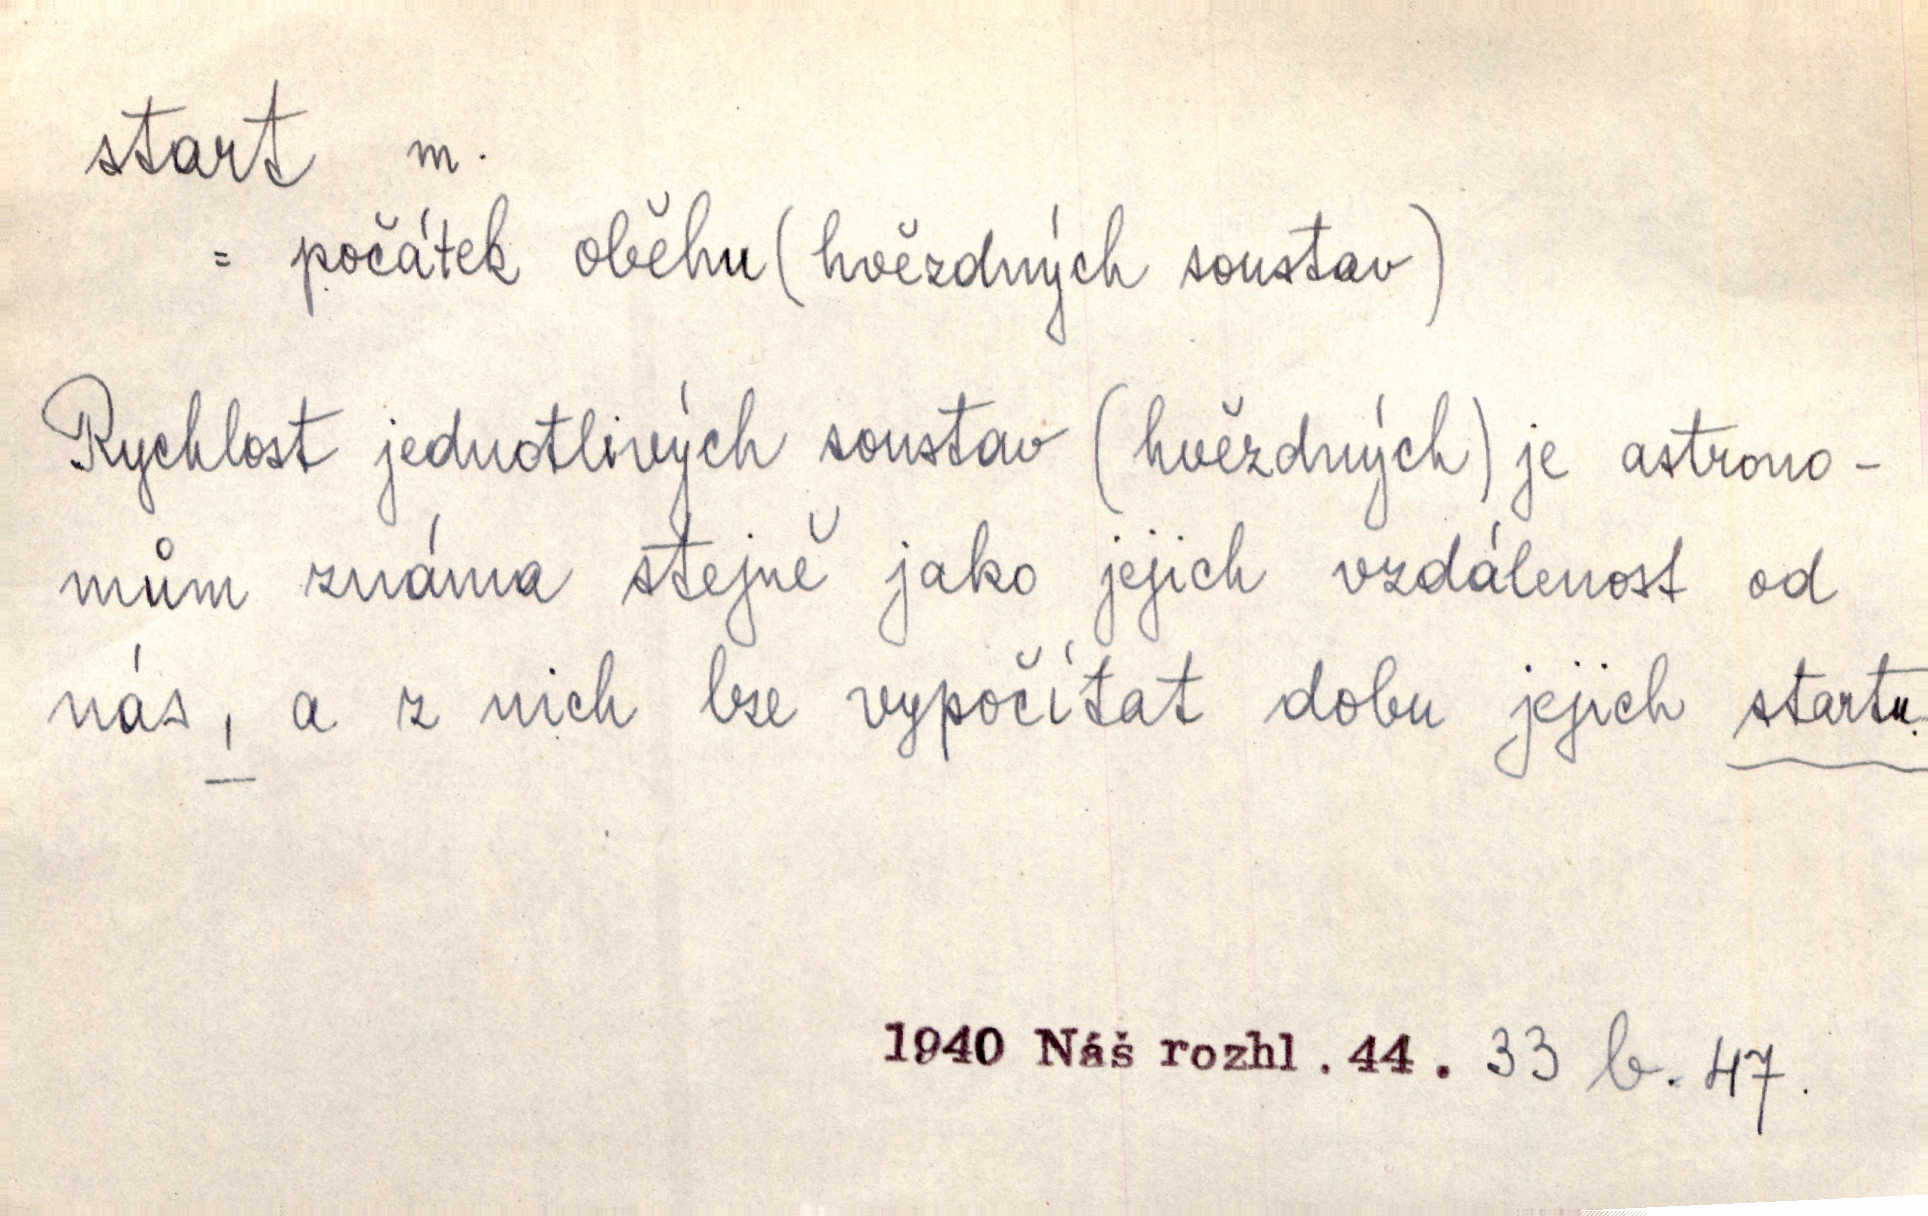 start m.
= počátek oběhu (hvězdných soustav)
Rychlost jednotlivých soustav (hvězdných) je astrono-
mům známa stejně jako jejich vzdálenost od
nás, a z nich lze vypočítat dobu jejich startu.
1940 Náš rozhl. 44. 33 b. 47.